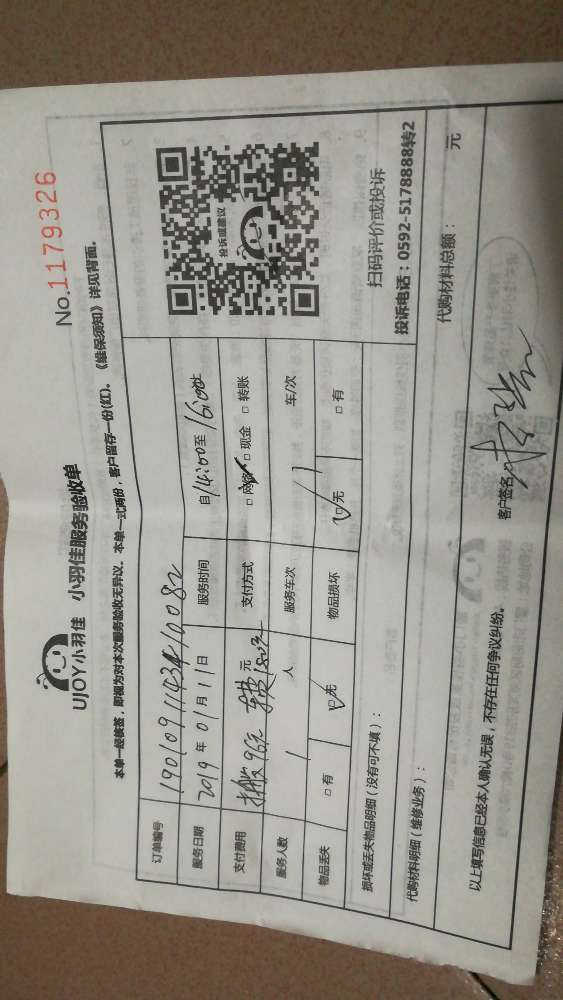 UJOY小羽佳 小羽佳服务验收单
No.1179326
本单一经核签，即视为对本次服务验收无异议。本单一式两份，客户留存一份(红)。《维保须知》详见背面。
订单编号
服务日期 2019 年 01 月 11 日 服务时间 自14:00至16:00止
支付费用 96元 元 支付方式 □ 网络 □ 现金 □ 转账
服务人数 1 人 服务车次 1 车/次
物品丢失 □ 有 □ 无 物品损坏 □ 无 □ 有
投诉或建议
扫码评价或投诉
投诉电话：0592-5178888转2
损坏或丢失物品明细（没有可不填）：
代购材料明细（维修业务）： 代购材料总额： 元
以上填写信息已经本人确认无误，不存在任何争议纠纷。 客户签名：